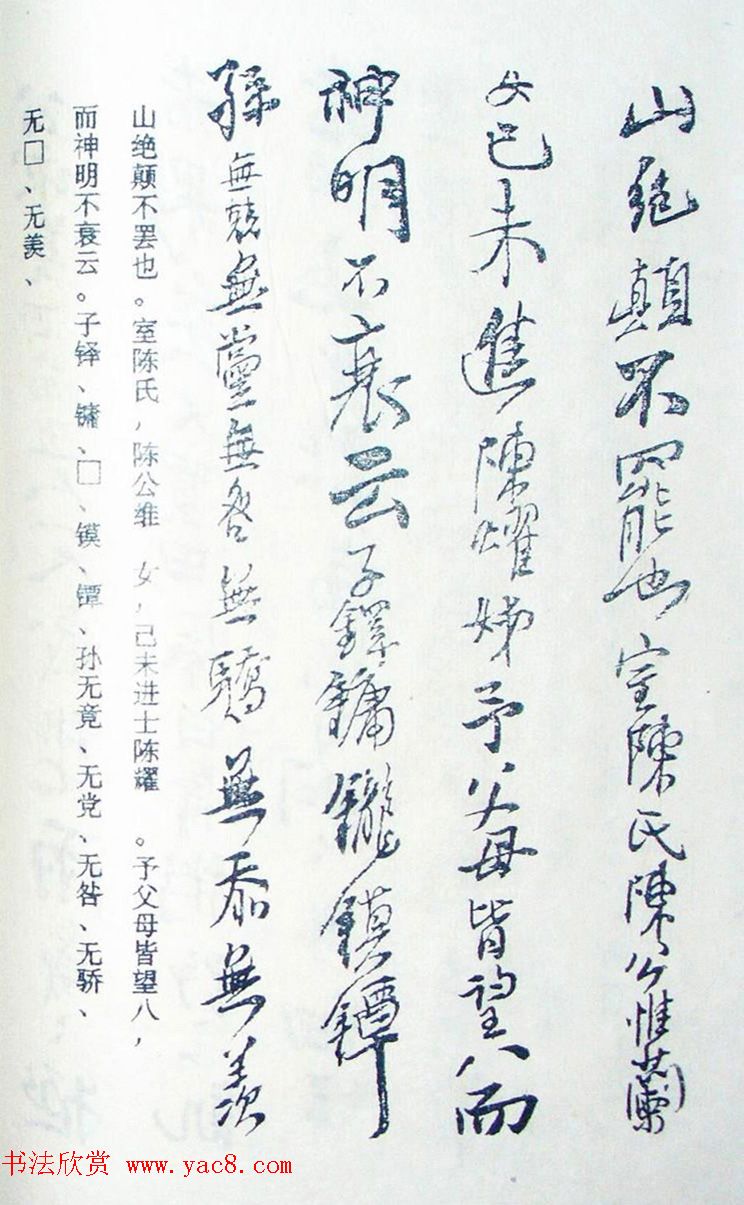 山絕顛不罷也室陳氏陳公惟蘭
女己未進陳燿姊予父母皆望八而
神明不衰云子鐸鏞鑨鏌鐔
孫無競無黨無咎無驕無忝無羨
山绝颠不罢也。室陈氏,陈公维 女,己未进士陈耀 。予父母皆望八,
而神明不衰云。子铎、镛、□、镆、镡、孙无竟、无党、无咎、无骄、
无□、无羡、
书法欣赏 www.yac8.com